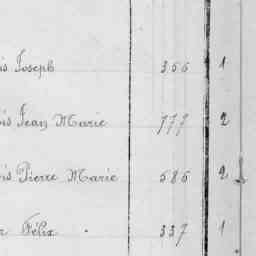 is Joseph 366 1
is Jean Marie 777 2
is Pierre Marie 586 2
r Félix 337 1